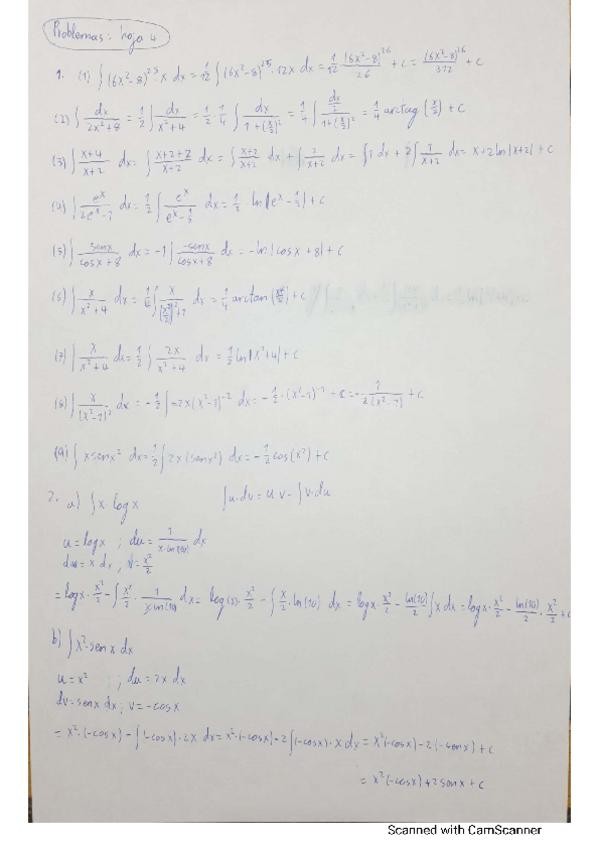 Problemas: hoja 4
1. (1) ∫(6x²-8)²⁵·x dx = 1/12 ∫(6x²-8)²⁵·12x dx = 1/12 (6x²-8)²⁶/26 + c = (6x²-8)²⁶/312 + c
(2) ∫ dx/(2x²+8) = 1/2 ∫ dx/(x²+4) = 1/2·1/4 ∫ dx/(1+(x/2)²) = 1/4 ∫ (dx/2)/(1+(x/2)²) = 1/4 arctag (x/2) + c
(3) ∫ (x+4)/(x+2) dx = ∫ (x+2+2)/(x+2) dx = ∫ (x+2)/(x+2) dx + ∫ 2/(x+2) dx = ∫1 dx + 2∫ 1/(x+2) dx = x+2 ln|x+2| + c
(4) ∫ eˣ/(2eˣ-1) dx = 1/2 ∫ eˣ/(eˣ-1/2) dx = 1/2 · ln|eˣ-1/2| + c
(5) ∫ senx/(cosx+8) dx = -1 ∫ -senx/(cosx+8) dx = -ln|cosx+8| + c
(6) ∫ x/(x²+4) dx = ∫ x/ dx = 1/4 arctan + c
(7) ∫ x/(x²+4) dx = 1/2 ∫ 2x/(x²+4) dx = 1/2 ln|x²+4| + c
(8) ∫ x/(x²-1)² dx = -1/2 ∫ -2x(x²-1)⁻² dx = -1/2·(x²-1)⁻¹ + c = -1/(2(x²-1)) + c
(9) ∫ x senx² dx = 1/2 ∫ 2x(senx²) dx = -1/2 cos(x²) + c
2. a) ∫x·logx ∫u·dv = u·v - ∫v·du
u = logx ; du = 1/(x·ln(10)) dx
dv = x dx ; v = x²/2
= logx·x²/2 - ∫ x²/2 · 1/(x ln(10)) dx = log(x)·x²/2 - ∫ x/2 · ln(10) dx = logx·x²/2 - ln(10)/2 ∫x dx = logx·x²/2 - ln(10)/2 · x²/2 + c
b) ∫x²·sen x dx
u = x² ; du = 2x dx
dv = senx dx ; v = -cosx
= x²·(-cosx) - ∫(-cosx)·2x dx = x²·(-cosx) - 2∫(-cosx)·x dx = x²(-cosx) - 2(-senx) + c
= x²(-cosx) + 2senx + c
Scanned with CamScanner